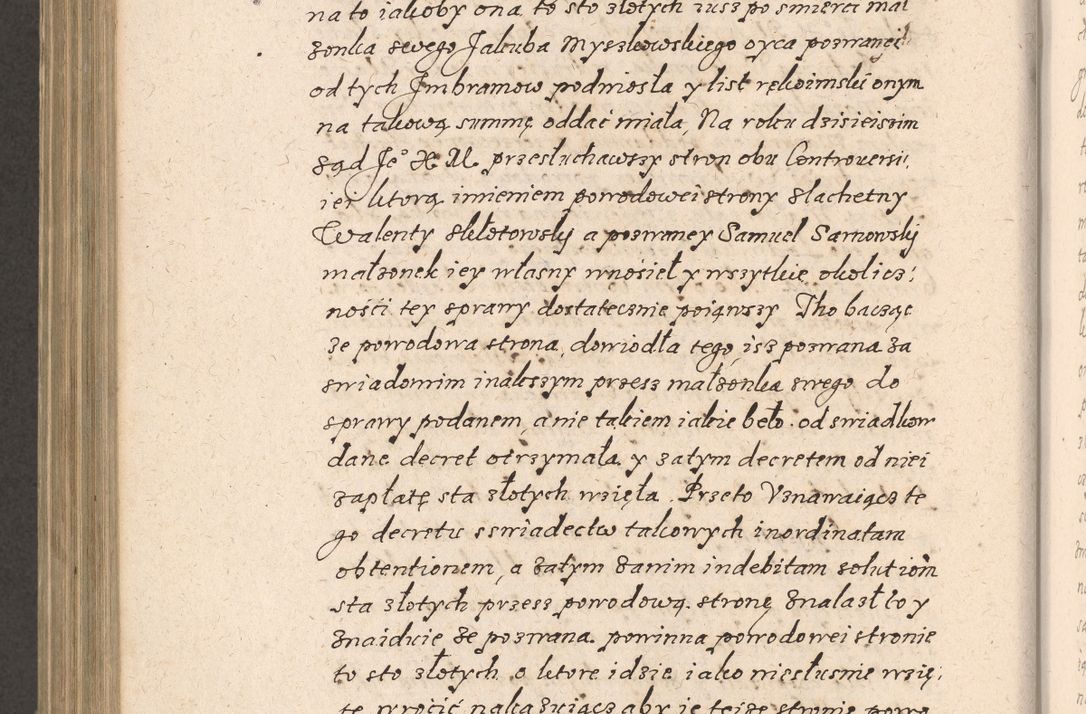 na to iakoby ona to sto złotych iusz po smierci mał
zonka swego Jakuba Myszkowskiego oyca pozwanei
od tych Jmbramow podniosła y list rękoimski onym
na takową summę oddać miała, Na roku dzisieiszim
sąd Je° X. M. przesłuchawszy stron obu Controuersi,
iei ktorą imieniem powodowei strony slachetny
Walenty Skłotowsky a pozwaney Samuel Sarnowsky
małzonek iey własny wnosieł y wszytkie okolicz,
ności tey sprawy dostatecznie poiąwszy Tho bacząc
ze powodowa strona, dowiodła tego, isz pozwana za
swiadomim inakszym przesz małzonka swego do
sprawy podanem, a nie takiem iakie beło od swiadkow
dane decret otrzymała y zatym decretem od niei
zapłatę sta złotych wzięła. Przeto Vznawaiącz te
go decretu sswiadectw takowych inordinatam
obtentionem, a zatym zanim indebitam solutiom
sta złotych przesz powodową stronę znalazł to y
znaiduie ze pozwana powinna powodowei stronie
to sto złotych o ktore idzie iako niesłusnie wzię,
te wrócić nakazuiącz aby ie teize stronie powo